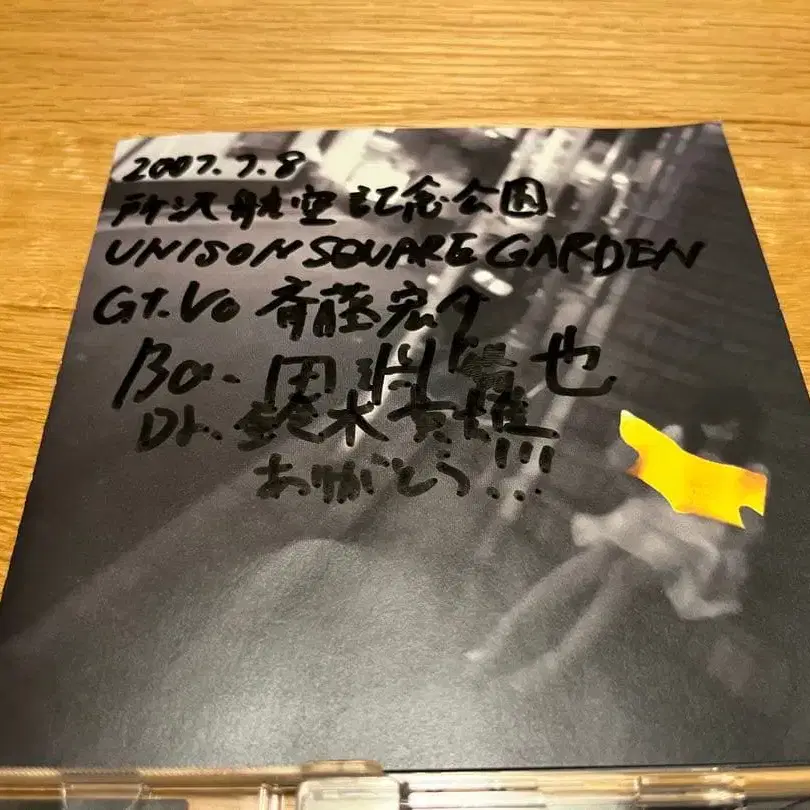 2007.7.8
所沢航空記念公園
UNISON SQUARE GARDEN
Gt.Vo 斎藤宏介
Ba. 田淵智也
Dr. 鈴木貴雄
ありがとう!!!